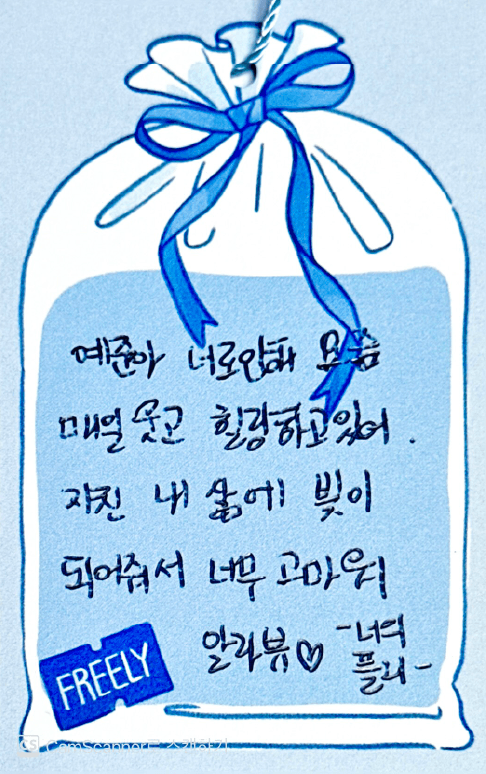 예준아 너로인해 요즘
매일 웃고 힐링하고있어.
지친 내 삶에 빛이
되어줘서 너무 고마워
알라뷰♡ -너의
플리-
FREELY
CS CamScanner로 스캔하기